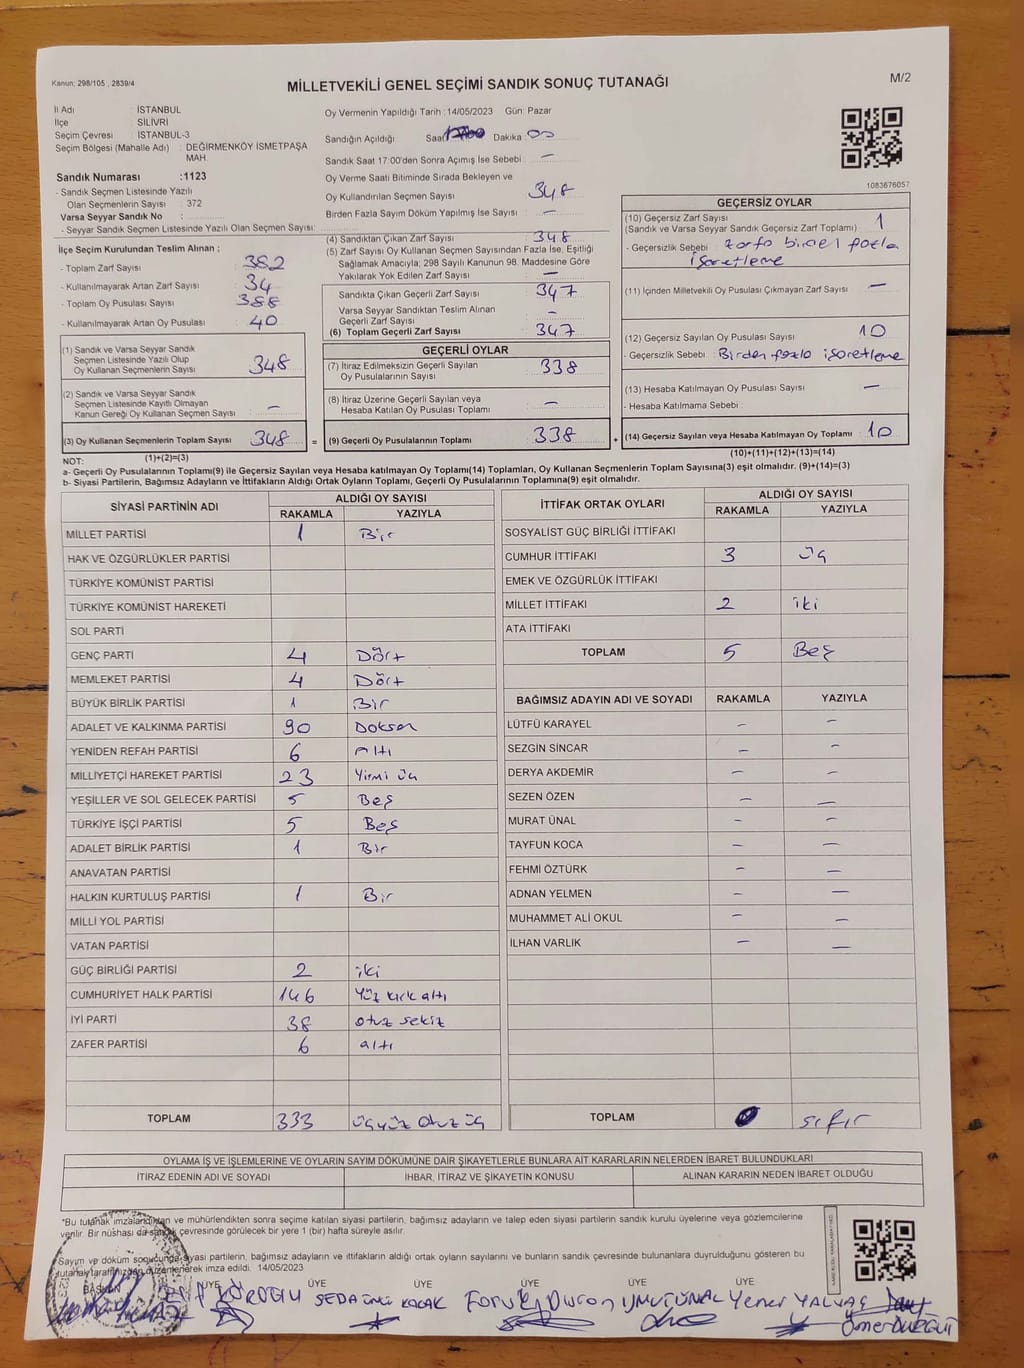 Kanun: 298/105 , 2839/4
M/2
MİLLETVEKİLİ GENEL SEÇİMİ SANDIK SONUÇ TUTANAĞI
İl Adı : İSTANBUL
İlçe : SİLİVRİ
Seçim Çevresi : İSTANBUL-3
Seçim Bölgesi (Mahalle Adı) : DEĞİRMENKÖY İSMETPAŞA
MAH.
Sandık Numarası :1123
- Sandık Seçmen Listesinde Yazılı
Olan Seçmenlerin Sayısı : 372
Varsa Seyyar Sandık No :
- Seyyar Sandık Seçmen Listesinde Yazılı Olan Seçmen Sayısı:
İlçe Seçim Kurulundan Teslim Alınan ;
- Toplam Zarf Sayısı : 382
- Kullanılmayarak Artan Zarf Sayısı : 34
- Toplam Oy Pusulası Sayısı : 388
- Kullanılmayarak Artan Oy Pusulası : 40
(1) Sandık ve Varsa Seyyar Sandık
Seçmen Listesinde Yazılı Olup
Oy Kullanan Seçmenlerin Sayısı : 348
(2) Sandık ve Varsa Seyyar Sandık
Seçmen Listesinde Kayıtlı Olmayan
Kanun Gereği Oy Kullanan Seçmen Sayısı : -
(3) Oy Kullanan Seçmenlerin Toplam Sayısı : 348 =
(1)+(2)=(3)
Oy Vermenin Yapıldığı Tarih : 14/05/2023 Gün: Pazar
Sandığın Açıldığı Saat Dakika : 00
Sandık Saat 17:00'den Sonra Açımış İse Sebebi : -
Oy Verme Saati Bitiminde Sırada Bekleyen ve
Oy Kullandırılan Seçmen Sayısı : 348
Birden Fazla Sayım Döküm Yapılmış İse Sayısı : -
(4) Sandıktan Çıkan Zarf Sayısı : 348
(5) Zarf Sayısı Oy Kullanan Seçmen Sayısından Fazla İse, Eşitliği
Sağlamak Amacıyla, 298 Sayılı Kanunun 98. Maddesine Göre
Yakılarak Yok Edilen Zarf Sayısı : -
Sandıkta Çıkan Geçerli Zarf Sayısı : 347
Varsa Seyyar Sandıktan Teslim Alınan
Geçerli Zarf Sayısı : -
(6) Toplam Geçerli Zarf Sayısı : 347
GEÇERLİ OYLAR
(7) İtiraz Edilmeksizin Geçerli Sayılan
Oy Pusulalarının Sayısı : 338
(8) İtiraz Üzerine Geçerli Sayılan veya
Hesaba Katılan Oy Pusulası Toplamı : -
(9) Geçerli Oy Pusulalarının Toplamı : 338 +
1083676057
GEÇERSİZ OYLAR
(10) Geçersiz Zarf Sayısı : 1
(Sandık ve Varsa Seyyar Sandık Geçersiz Zarf Toplamı)
- Geçersizlik Sebebi : zarfa birden fazla
işaretleme
(11) İçinden Milletvekili Oy Pusulası Çıkmayan Zarf Sayısı : -
(12) Geçersiz Sayılan Oy Pusulası Sayısı : 10
- Geçersizlik Sebebi : Birden fazla işaretleme
(13) Hesaba Katılmayan Oy Pusulası Sayısı : -
- Hesaba Katılmama Sebebi :
(14) Geçersiz Sayılan veya Hesaba Katılmayan Oy Toplamı : 10
(10)+(11)+(12)+(13)=(14)
NOT:
a- Geçerli Oy Pusulalarının Toplamı(9) ile Geçersiz Sayılan veya Hesaba katılmayan Oy Toplamı(14) Toplamları, Oy Kullanan Seçmenlerin Toplam Sayısına(3) eşit olmalıdır. (9)+(14)=(3)
b- Siyasi Partilerin, Bağımsız Adayların ve İttifakların Aldığı Ortak Oyların Toplamı, Geçerli Oy Pusulalarının Toplamına(9) eşit olmalıdır.
SİYASİ PARTİNİN ADI ALDIĞI OY SAYISI
RAKAMLA YAZIYLA
MİLLET PARTİSİ 1 Bir
HAK VE ÖZGÜRLÜKLER PARTİSİ
TÜRKİYE KOMÜNİST PARTİSİ
TÜRKİYE KOMÜNİST HAREKETİ
SOL PARTİ
GENÇ PARTİ 4 Dört
MEMLEKET PARTİSİ 4 Dört
BÜYÜK BİRLİK PARTİSİ 1 Bir
ADALET VE KALKINMA PARTİSİ 90 Doksan
YENİDEN REFAH PARTİSİ 6 Altı
MİLLİYETÇİ HAREKET PARTİSİ 23 Yirmi üç
YEŞİLLER VE SOL GELECEK PARTİSİ 5 Beş
TÜRKİYE İŞÇİ PARTİSİ 5 Beş
ADALET BİRLİK PARTİSİ 1 Bir
ANAVATAN PARTİSİ
HALKIN KURTULUŞ PARTİSİ 1 Bir
MİLLİ YOL PARTİSİ
VATAN PARTİSİ
GÜÇ BİRLİĞİ PARTİSİ 2 iki
CUMHURİYET HALK PARTİSİ 146 Yüz kırk altı
İYİ PARTİ 38 otuz sekiz
ZAFER PARTİSİ 6 altı
TOPLAM 333 üçyüz otuz üç
İTTİFAK ORTAK OYLARI ALDIĞI OY SAYISI
RAKAMLA YAZIYLA
SOSYALİST GÜÇ BİRLİĞİ İTTİFAKI
CUMHUR İTTİFAKI 3 üç
EMEK VE ÖZGÜRLÜK İTTİFAKI
MİLLET İTTİFAKI 2 iki
ATA İTTİFAKI
TOPLAM 5 Beş
BAĞIMSIZ ADAYIN ADI VE SOYADI RAKAMLA YAZIYLA
LÜTFÜ KARAYEL - -
SEZGİN SİNCAR - -
DERYA AKDEMİR - -
SEZEN ÖZEN - -
MURAT ÜNAL - -
TAYFUN KOCA - -
FEHMİ ÖZTÜRK - -
ADNAN YELMEN - -
MUHAMMET ALİ OKUL - -
İLHAN VARLIK - -
TOPLAM 0 sıfır
OYLAMA İŞ VE İŞLEMLERİNE VE OYLARIN SAYIM DÖKÜMÜNE DAİR ŞİKAYETLERLE BUNLARA AİT KARARLARIN NELERDEN İBARET BULUNDUKLARI
İTİRAZ EDENİN ADI VE SOYADI İHBAR, İTİRAZ VE ŞİKAYETİN KONUSU ALINAN KARARIN NEDEN İBARET OLDUĞU
*Bu tutanak imzalandıktan ve mühürlendikten sonra seçime katılan siyasi partilerin, bağımsız adayların ve talep eden siyasi partilerin sandık kurulu üyelerine veya gözlemcilerine
verilir. Bir nüshası da sandık çevresinde görülecek bir yere 1 (bir) hafta süreyle asılır.
Sayım ve döküm sonucunda siyasi partilerin, bağımsız adayların ve ittifakların aldığı ortak oyların sayılarını ve bunların sandık çevresinde bulunanlara duyrulduğunu gösteren bu
tutanak tarafımızdan düzenlenerek imza edildi. 14/05/2023
BAŞKAN ÜYE ÜYE ÜYE ÜYE ÜYE ÜYE
KÖROĞLU SEDA KOÇAK Faruk Duran UMUT ÜNAL Yener YALVAÇ
Ömer DURGUT